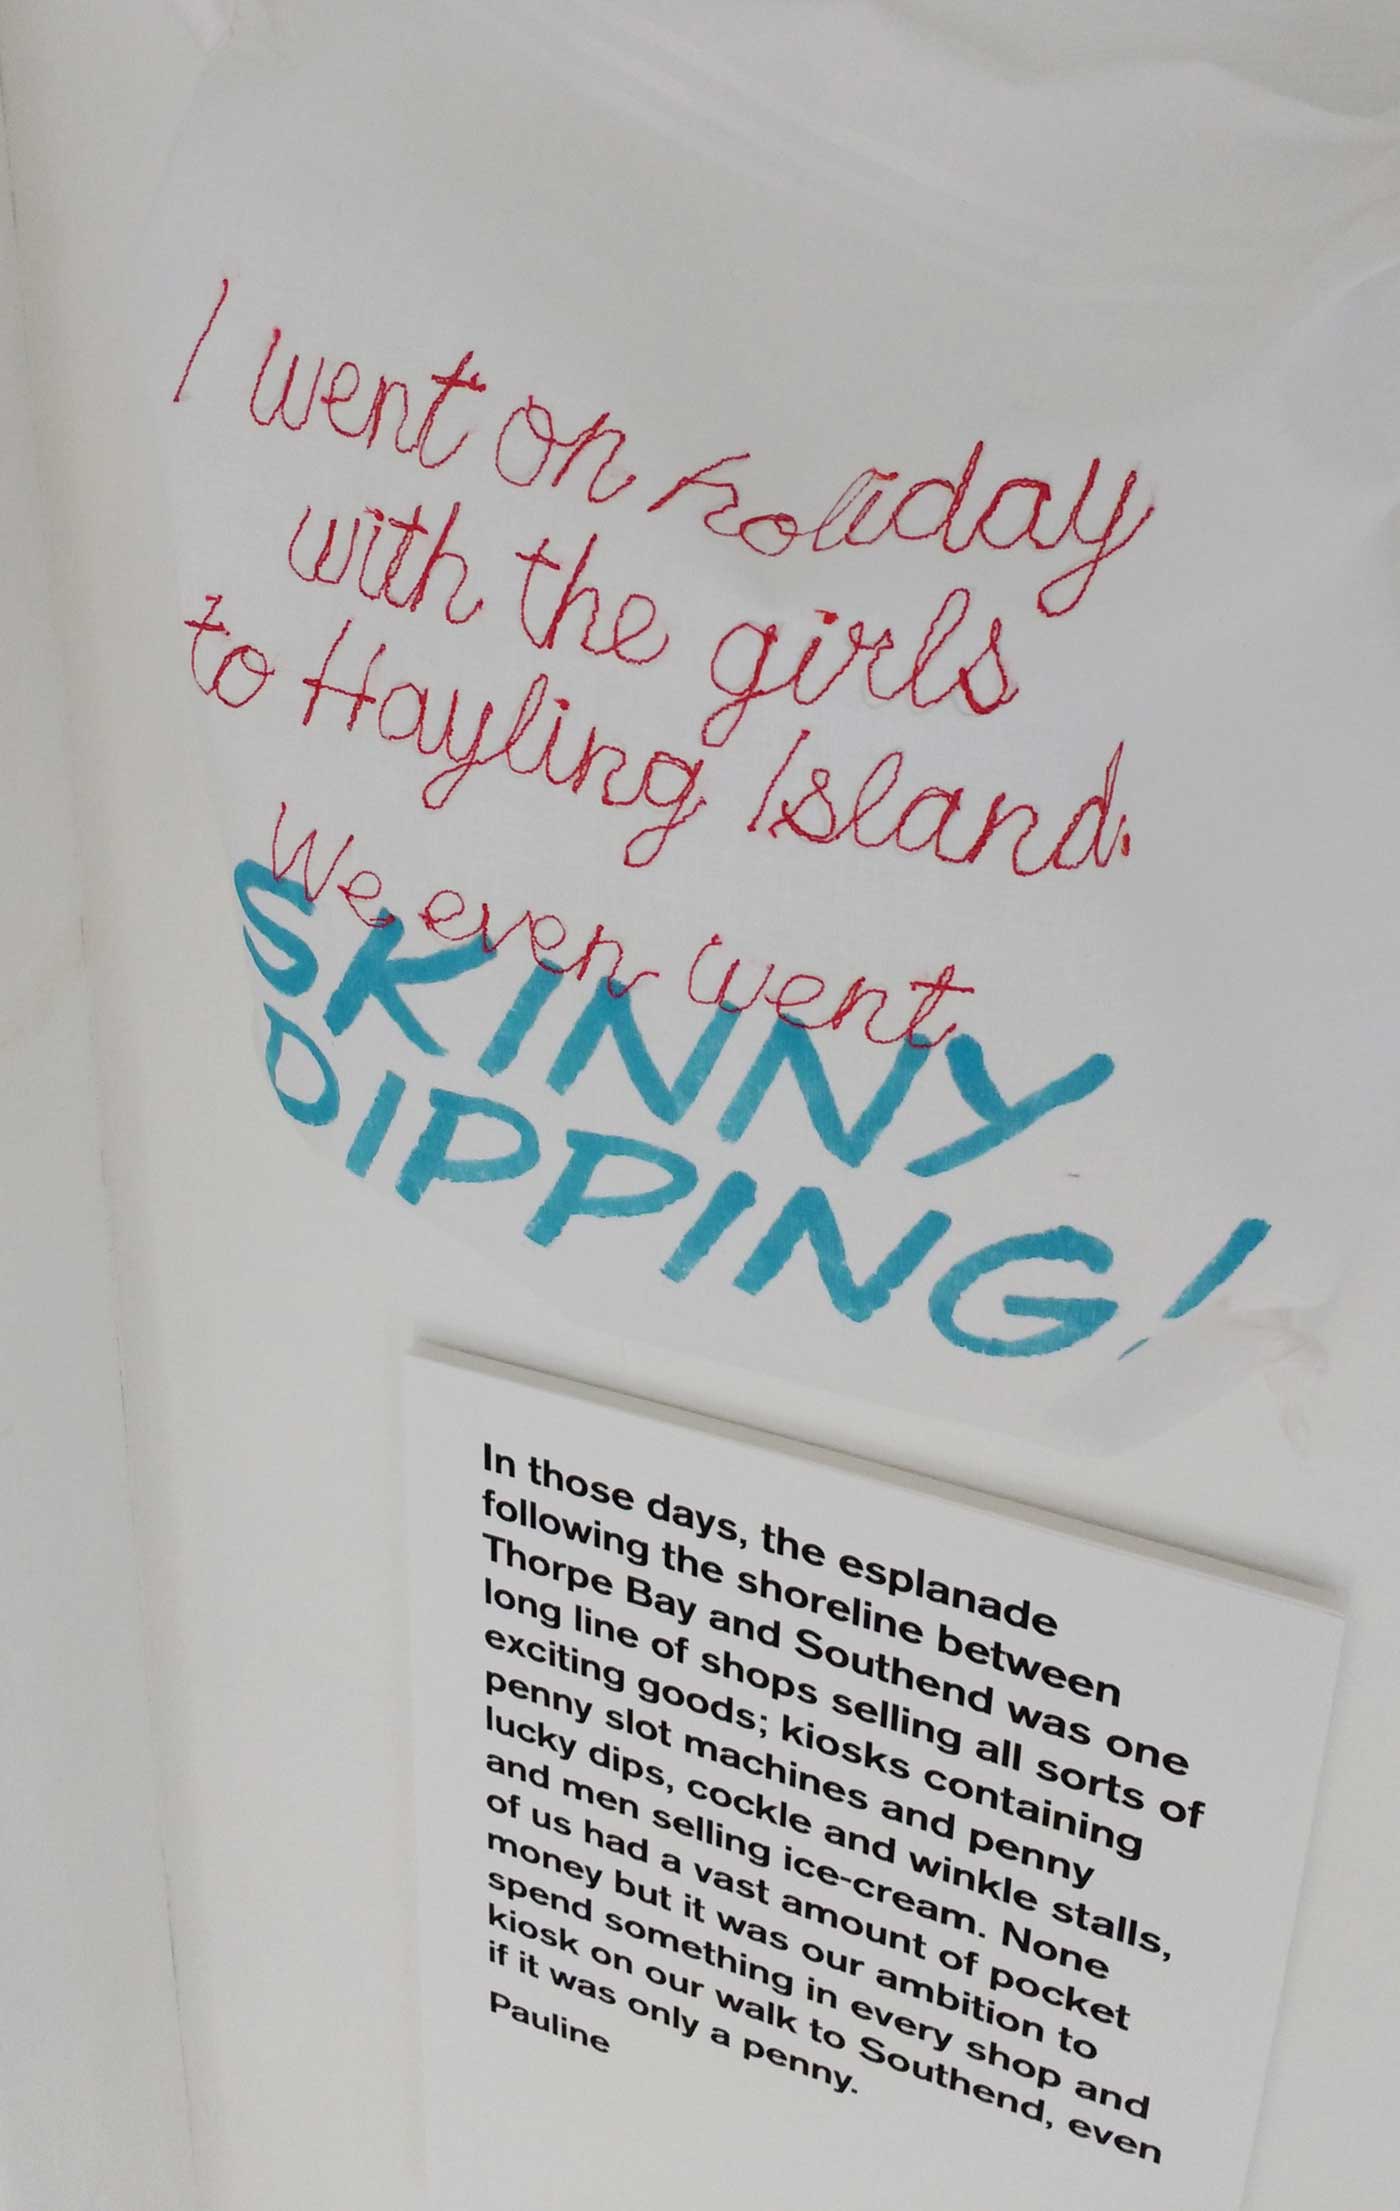 I went on holiday
with the girls
to Hayling Island.
We even went
SKINNY
DIPPING!
In those days, the esplanade
following the shoreline between
Thorpe Bay and Southend was one
long line of shops selling all sorts of
exciting goods; kiosks containing
penny slot machines and penny
lucky dips, cockle and winkle stalls,
and men selling ice-cream. None
of us had a vast amount of pocket
money but it was our ambition to
spend something in every shop and
kiosk on our walk to Southend, even
if it was only a penny.
Pauline